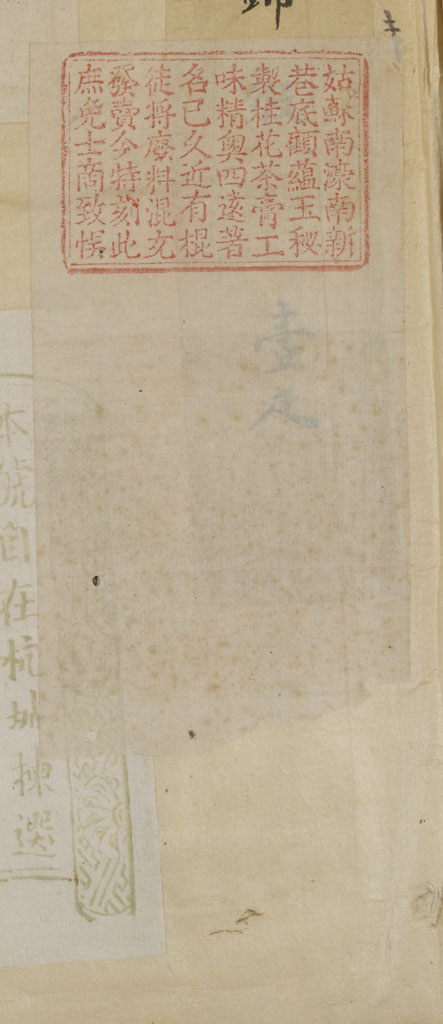 姑蘇南濠南新
巷底顧蘊玉秘
製桂花茶膏工
味精奧四遠著
名已久近有棍
徒将廢料混充
發賣今特刻此
庶免士商致悞
壹疋
本號自在杭州揀選